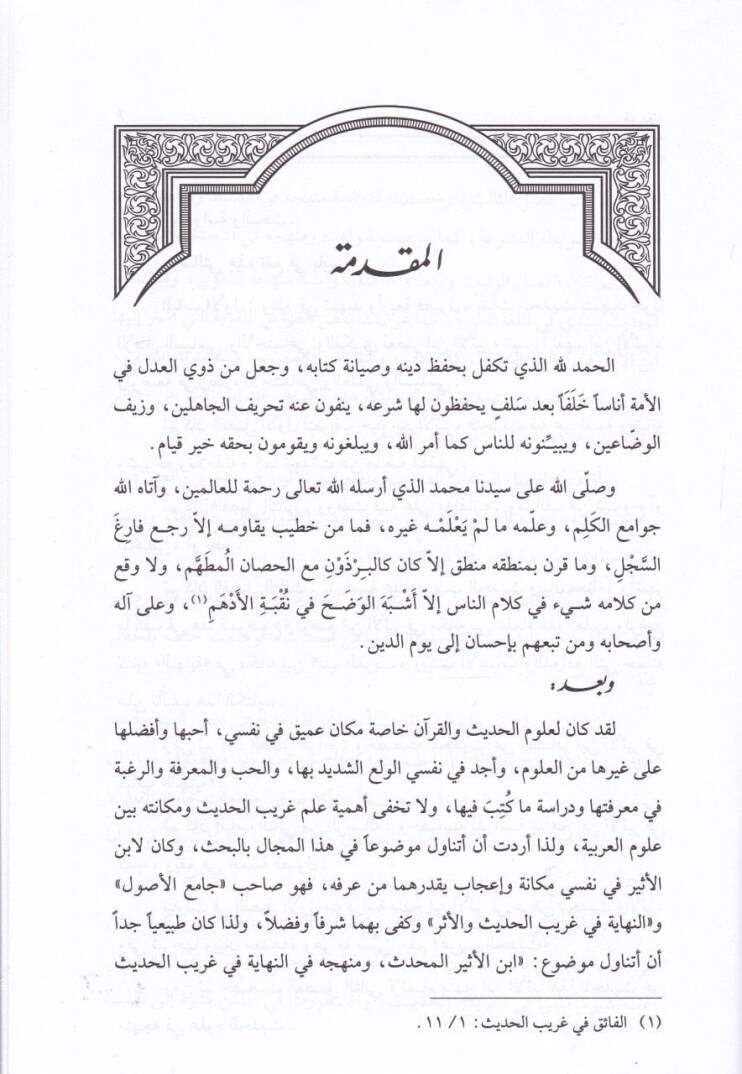 المقدمة
الحمد لله الذي تكفل بحفظ دينه وصيانة كتابه، وجعل من ذوي العدل في
الأمة أناساً خَلَفَاً بعد سَلفٍ يحفظون لها شرعه، ينفون عنه تحريف الجاهلين، وزيف
الوضاعين، ويبيِّنونه للناس كما أمر الله، ويبلغونه ويقومون بحقه خير قيام.
وصلّى الله على سيدنا محمد الذي أرسله الله تعالى رحمة للعالمين، وآتاه الله
جوامع الكَلِم، وعلمه ما لمْ يَعْلَمْه غيره، فما من خطيب يقاومه إلاّ رجع فارِغَ
السَّجْلِ، وما قرن بمنطقه منطق إلاّ كان كالبِرْذَوْنِ مع الحصان الُمطَهَّم، ولا وقع
من كلامه شيء في كلام الناس إلاّ أَشْبَهَ الوَضَحَ في نُقْبَةِ الأَدْهَمِ(١)، وعلى آله
وأصحابه ومن تبعهم بإحسان إلى يوم الدين.
وبعد:
لقد كان لعلوم الحديث والقرآن خاصة مكان عميق في نفسي، أحبها وأفضلها
على غيرها من العلوم، وأجد في نفسي الولع الشديد بها، والحب والمعرفة والرغبة
في معرفتها ودراسة ما كُتِبَ فيها، ولا تخفى أهمية علم غريب الحديث ومكانته بين
علوم العربية، ولذا أردت أن أتناول موضوعاً في هذا المجال بالبحث، وكان لابن
الأثير في نفسي مكانة وإعجاب يقدرهما من عرفه، فهو صاحب «جامع الأصول»
و«النهاية في غريب الحديث والأثر» وكفى بهما شرفاً وفضلاً، ولذا كان طبيعياً جداً
أن أتناول موضوع: «ابن الأثير المحدث، ومنهجه في النهاية في غريب الحديث
(١) الفائق في غريب الحديث: ١/ ١١.